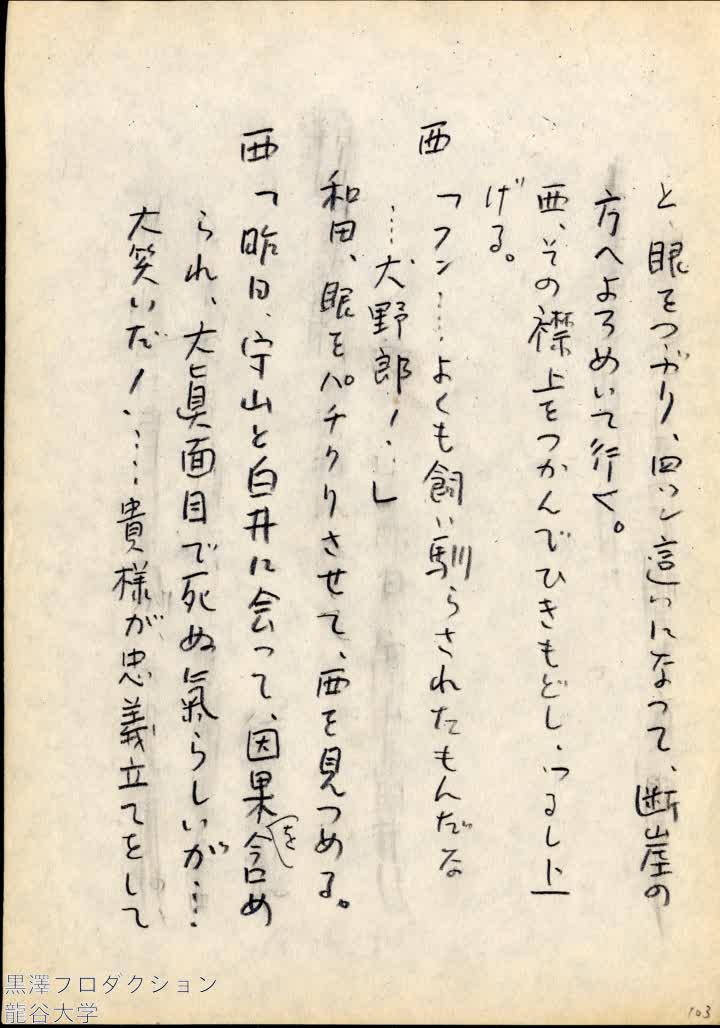 と、眼をつぶり、四ツン這いになって、断崖の
方へよろめいて行く。
西、その襟上をつかんでひきもどし、つるし上
げる。
西「フン……よくも飼い馴らされたもんだな
……犬野郎！」
和田、眼をパチクリさせて、西を見つめる。
西「昨日、守山と白井に会って、因果を含め
られ、大眞面目で死ぬ氣らしいが……
大笑いだ！……貴様が忠義立てをして
黒澤プロダクション
龍谷大学
103